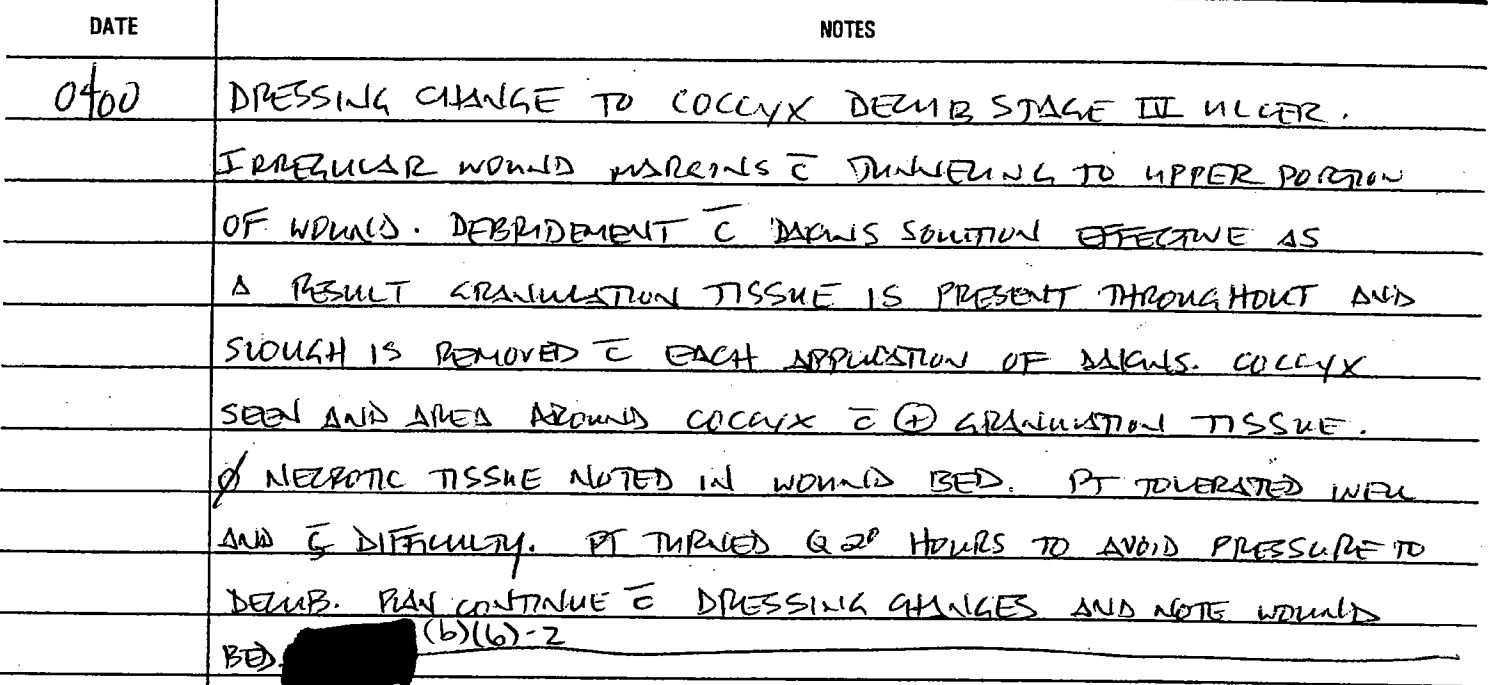 DATE NOTES
0400 DRESSING CHANGE TO COCCYX DECUB STAGE IV ULCER.
IRREGULAR WOUND MARGINS c̄ TUNNELING TO UPPER PORTION
OF WOUND. DEBRIDEMENT c̄ DAKINS SOLUTION EFFECTIVE AS
A RESULT GRANULATION TISSUE IS PRESENT THROUGHOUT AND
SLOUGH IS REMOVED c̄ EACH APPLICATION OF DAKINS. COCCYX
SEEN AND AREA AROUND COCCYX c̄ ⊕ GRANULATION TISSUE.
Ø NECROTIC TISSUE NOTED IN WOUND BED. PT TOLERATED WELL
AND DIFFICULTY. PT TURNED Q 2° HOURS TO AVOID PRESSURE TO
DECUB. PLAN CONTINUE c̄ DRESSING CHANGES AND NOTE WOUND
BED. (b)(6)-2